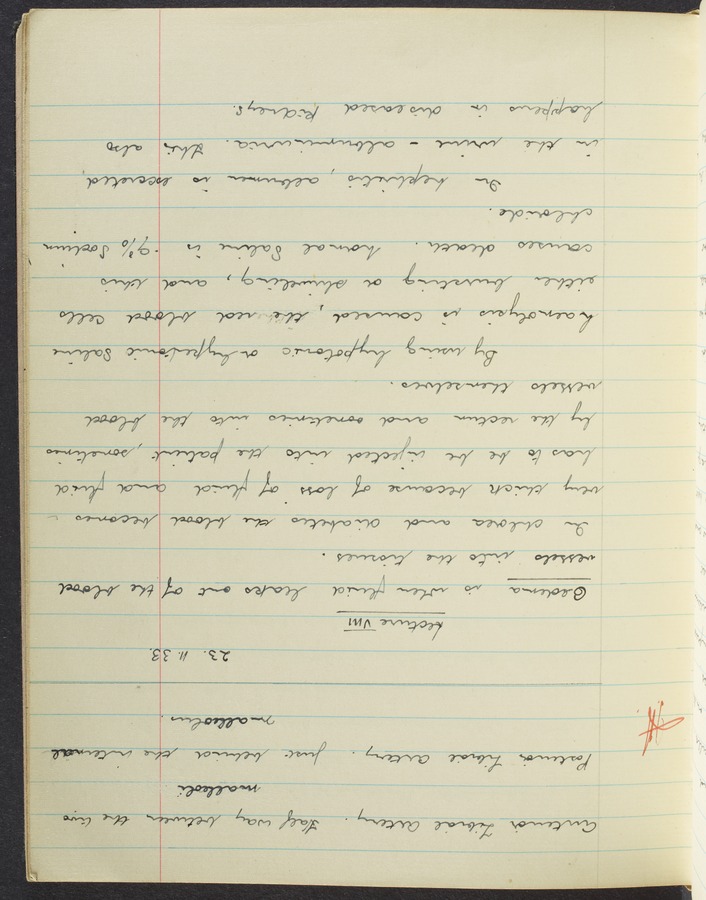 Anterior Tibial Artery. Half way between the two
malleoli
Posterior Tibial Artery. Just behind the internal
malleolus.
23. 11. 33.
Lecture VIII
Oedema is when fluid leaks out of the blood
vessels into the tissues.
In cholera and diabetes the blood becomes
very thick because of loss of fluid and fluid
has to be injected into the patient, sometimes
by the rectum and sometimes into the blood
vessels themselves.
By using hypotonic or hypertonic Saline
haemolysis is caused, the red blood cells
either bursting or shriveling, and this
causes death. Normal Saline is .9% Sodium
chloride.
In nephritis, albumen is excreted
in the urine - albuminuria. This also
happens in diseased kidneys.